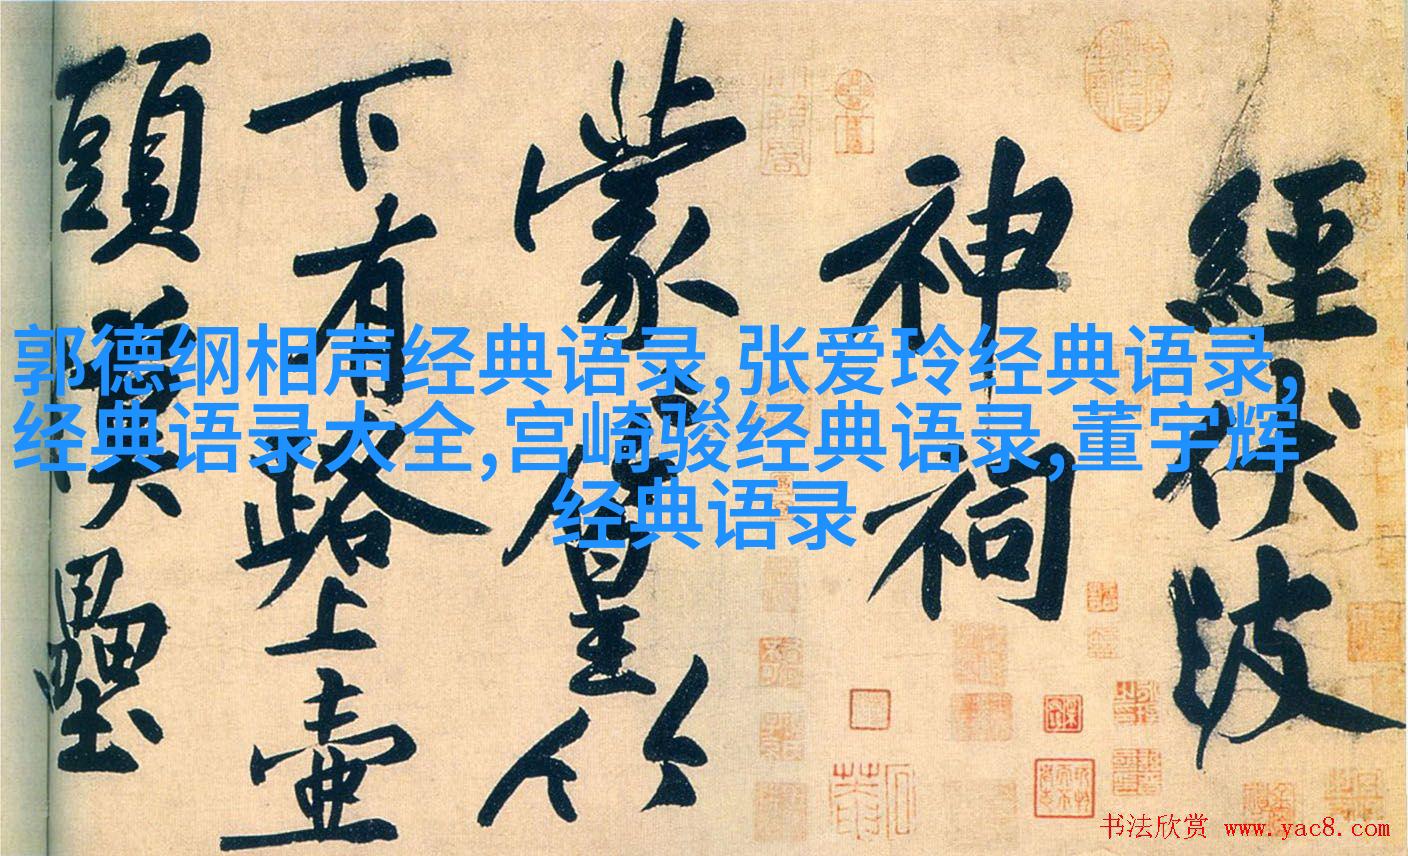 經伏波
神祠
蒙篁竹
下有路上壺
頭漢壘
郭德纲相声经典语录,张爱玲经典语录,
经典语录大全,宫崎骏经典语录,董宇辉
经典语录
书法欣赏 www.yac8.com